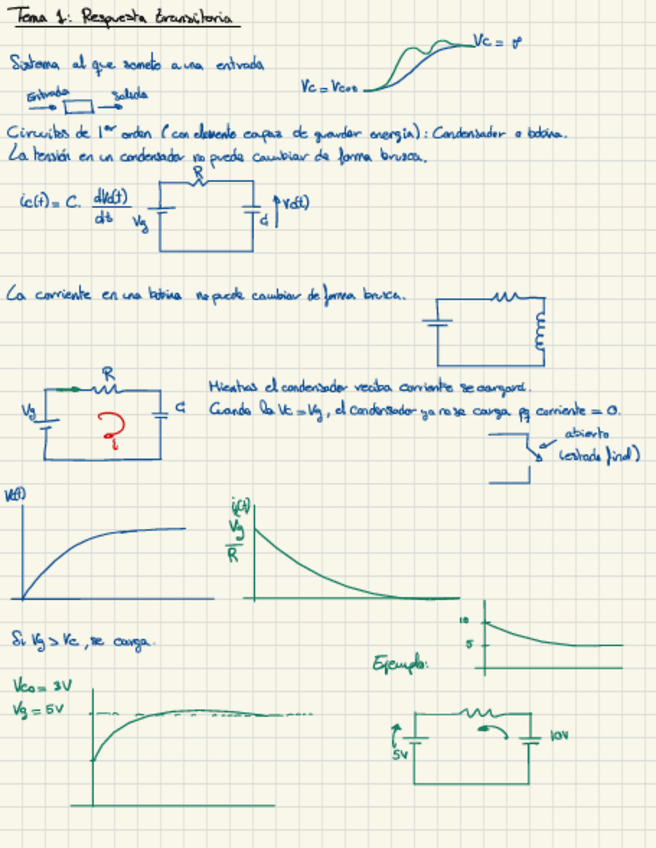 Tema 1: Respuesta transitoria
Sistema al que someto a una entrada
Vc = φ
Vc = Vco
Entrada Salida
Circuitos de 1er orden (con elemento capaz de guardar energía): Condensador o bobina.
La tensión en un condensador no puede cambiar de forma brusca.
R
ic(t) = C. dVc(t)/dt
Vg
C
Vc(t)
La corriente en una bobina no puede cambiar de forma brusca.
R
Vg
C
i
Mientras el condensador reciba corriente se cargará.
Cuando la Vc = Vg, el condensador ya no se carga pq corriente = 0.
abierto
(estado final)
Vc(t)
ic(t)
Vg
R
Si Vg > Vc, se carga.
10
5
Ejemplo:
Vco = 3V
Vg = 5V
5V
10V